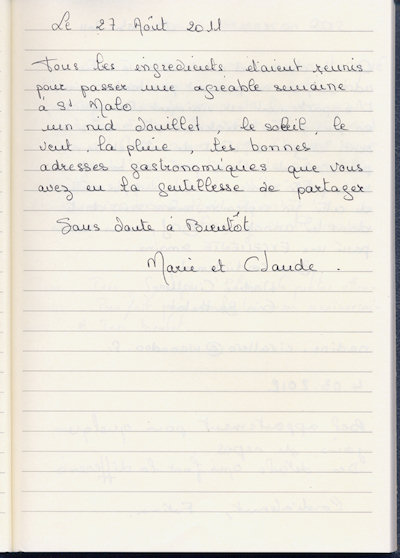 Le 27 Août 2011
Tous les ingredients etaient reunis
pour passer une agréable semaine
à St Malo
un nid douillet, le soleil, le
vent, la pluie, les bonnes
adresses gastronomiques que vous
avez eu la gentillesse de partager
Sans doute à Bientôt
Marie et Claude.